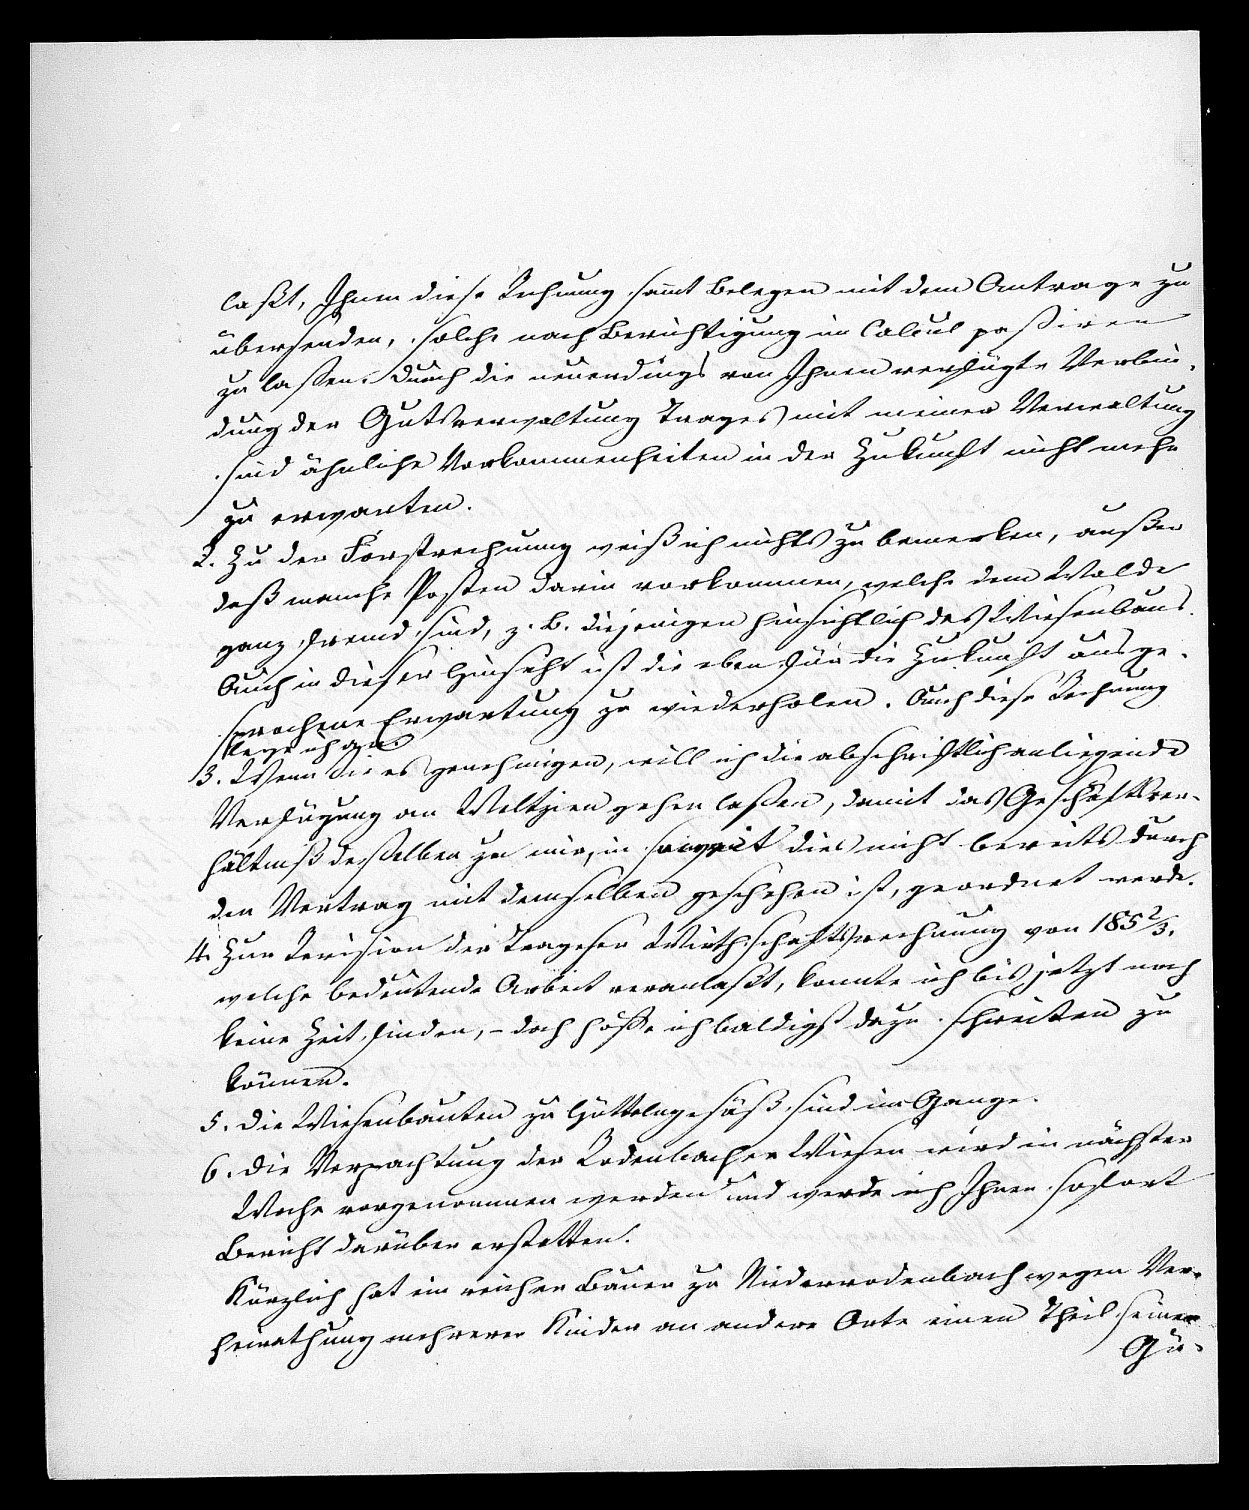 laßt, Ihnen diese Rechnung sammt Belegen mit dem Antrage zu
übersenden, solche nach Berichtigung im Calcul paßiren
zu laßen. Durch die neuerdings von Ihnen verfügte Verbin-
dung der Gutsverwaltung Trages mit meiner Verwaltung
sind ähnliche Vorkommenheiten in der Zukunft nicht mehr
zu erwarten.
2. Zu der Forstrechnung weiß ich nichts zu bemerken, außer
daß manche Posten darin vorkommen, welche dem Walde
ganz fremd sind, z. B. diejenigen hinsichtlich des Wiesenbaus.
Auch in dieser Hinsicht ist die eben für die Zukunft ausge-
sprochene Erwartung zu wiederholen. Auch diese Rechnung
lege ich an.
3. Wenn Sie es genehmigen, will ich die abschriftlich anliegende
Verfügung an Weltzien gehen laßen, damit das Geschäftsver-
hältniß deßelben zu mir, in soweit dies nicht bereits durch
den Vertrag mit demselben geschehen ist, geordnet werde.
4. Zur Revision der Trageser Wirthschaftsrechnung von 185 2/3,
welche bedeutende Arbeit veranlaßt, konnte ich bis jetzt noch
keine Zeit finden, – doch hoffe ich baldigst dazu schreiten zu
können.
5. Die Wiesenbauten zu Hüttelngesäß sind im Gange.
6. Die Verpachtung der Rodenbacher Wiesen wird in nächster
Woche vorgenommen werden und werde ich Ihnen sofort
Bericht darüber erstatten.
Kürzlich hat ein reicher Bauer zu Niederrodenbach wegen Ver-
heirathung mehrerer Kinder an andere Orte einen Theil seiner
Gü-